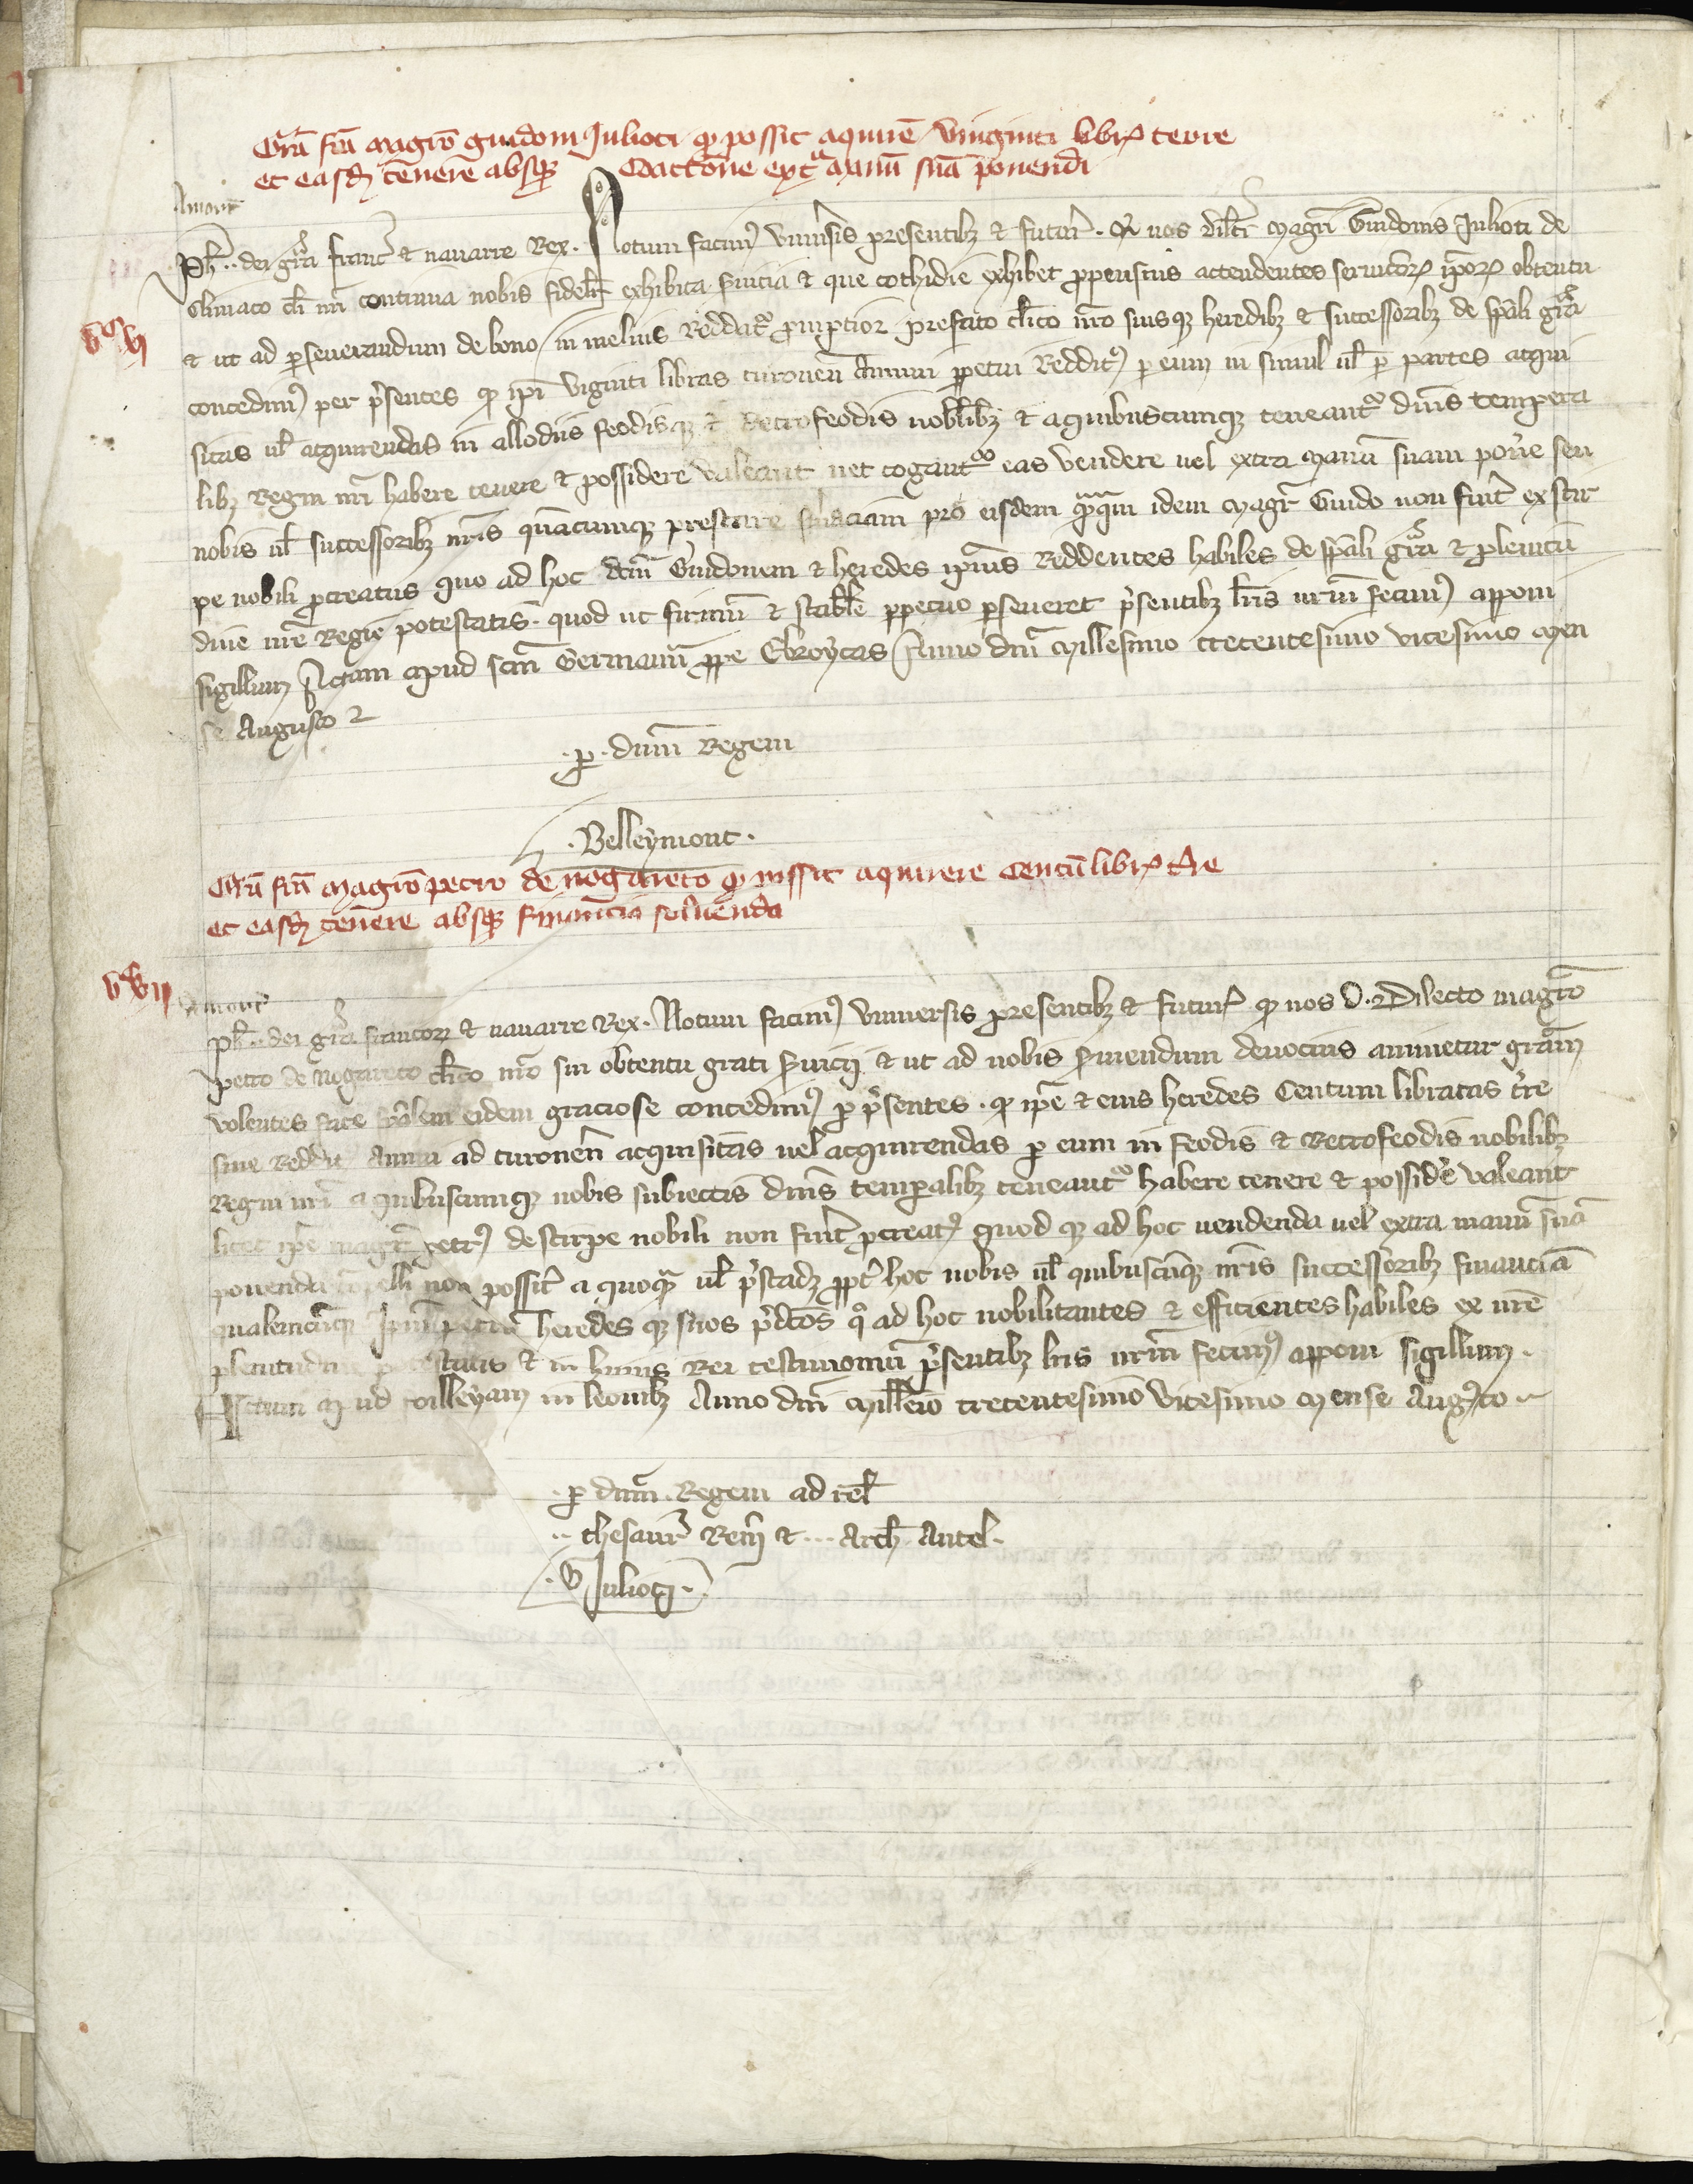 Gra͞ fca͞ magro͞ guidoni Julioti qʼ possit aquire͞ viuginti libr͞ terre
et easdꝫ tenere absqꝫ coactione extª manu͞ sua͞ ponendi
Amort͞
Ph͞. dei gra͞ franc͞ & nauarre Rex. Notum facimꝰ vniu͞sis presentibꝫ & futur͞. Qʼ nos dil͞cti magr͞i Guidonis Julioti de
Climaco cl͞i nr͞i continua nobis fidelit͞ exhibita s͞uicia & que cothidie exhibet propensius attendentes seruicior͞ ip͞or͞ obtentu
& ut ad perseuerandum de bono in melius Reddatʳ promptior prefato cl͞ico nr͞o suisqꝫ heredibꝫ & successoribꝫ de sp͞ali gra͞
concedimꝰ per p͞sentes qʼ ip͞i viginti libras turonen͞ annui ꝑpetui Redditꝰ ꝑ eum in simul ul͞ ꝑ partes acqui
sitas ul͞ acquirendas in allodiis feodisqꝫ & Retrofeodis nobl͞ibꝫ & a quibuscumqꝫ teneantʳ dn͞is tempora
libꝫ Regni nr͞i habere tenere & possidere valeant nec cogantʳ eas vendere uel extra manu͞ suam pon͞e seu
nobis ul͞ successoribꝫ nr͞is quamcumqꝫ prestare fin͞aciam pro eisdem qªqªm idem magr͞ Guido non fu͞it ex stir
pe nobili ꝓcreatus quo ad hoc dc͞m Guidonem & heredes ip͞ius Reddentes habiles de sp͞ali gra͞ & plenitu͞
dine nr͞e Regie potestatis. quod ut firmu͞ & stabl͞e ꝑpetuo ꝑseueret p͞sentibꝫ lr͞is nr͞m fecimꝰ apponi
sigillum Actum apud sc͞m Germanu͞ ꝓpe Ebroycas Anno dn͞i millesimo trecentesimo vicesimo men
se Augusto
.ꝑ. dn͞m Regem
.Belleymont.
Gra͞ fca͞ magro͞ petro de nogareto qʼ possit aquirere centu͞ libr͞ t͞re
et easdꝫ tenere absqꝫ financia soluenda
Amort͞
Ph͞. dei gra͞ francor͞ & nauarre Rex. Notum facimꝰ vniuersis presentibꝫ & futur͞ qʼ nos Dilecto magro͞
petro de Nogareto cl͞ico nr͞o sui obtentu grati s͞uicij & ut ad nobis s͞uiendum deuocius animetur gra͞m
volentes fac͞e sp͞alem eidem graciose concedimꝰ ꝑ p͞sentes. qʼ ip͞e & eius heredes Centum libratas t͞re
siue Reddit͞ Annui ad turonen͞ acquisitas uel acquirendas ꝑ eum in feodis & Retrofeodis nobilibꝫ
Regni nr͞i a quibuscumqꝫ nobis subiectis dn͞is temꝑalibꝫ teneantʳ habere tenere & possid͞e valeant
licet ip͞e magr͞ petrꝰ de stirpe nobili non fu͞it ꝓcreatꝰ quod qꝫ ad hoc uendenda uel extra manu͞ sua͞
ponenda co͞pelli non possit͞ a quoqª ul͞ p͞standꝫ ꝓpt͞ hoc nobis ul͞ quibuscu͞qꝫ nr͞is successoribꝫ financia͞
qualemcu͞qꝫ ip͞m petru͞ heredes qꝫ suos p͞dc͞os qº ad hoc nobilitantes & efficientes habiles ex nr͞e
plenitudine potestatis & in huius Rei testimoniu͞ p͞sentibꝫ lr͞is nr͞m fecimꝰ apponi sigillum.
Actum apud toilleyam in leonibꝫ Anno dn͞i mill͞io trecentesimo vicesimo mense Augꝰto
.ꝑ dn͞m. Regem ad rel͞
.. thesaur͞ Rem͞ & ... Arch͞ Autel.
.G Julioti.